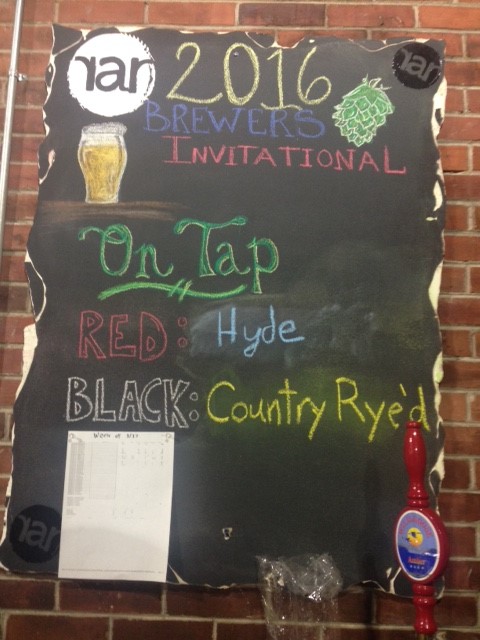 rar
2016
rar
BREWERS
INVITATIONAL
On Tap
RED: Hyde
BLACK: Country Rye'd
rar